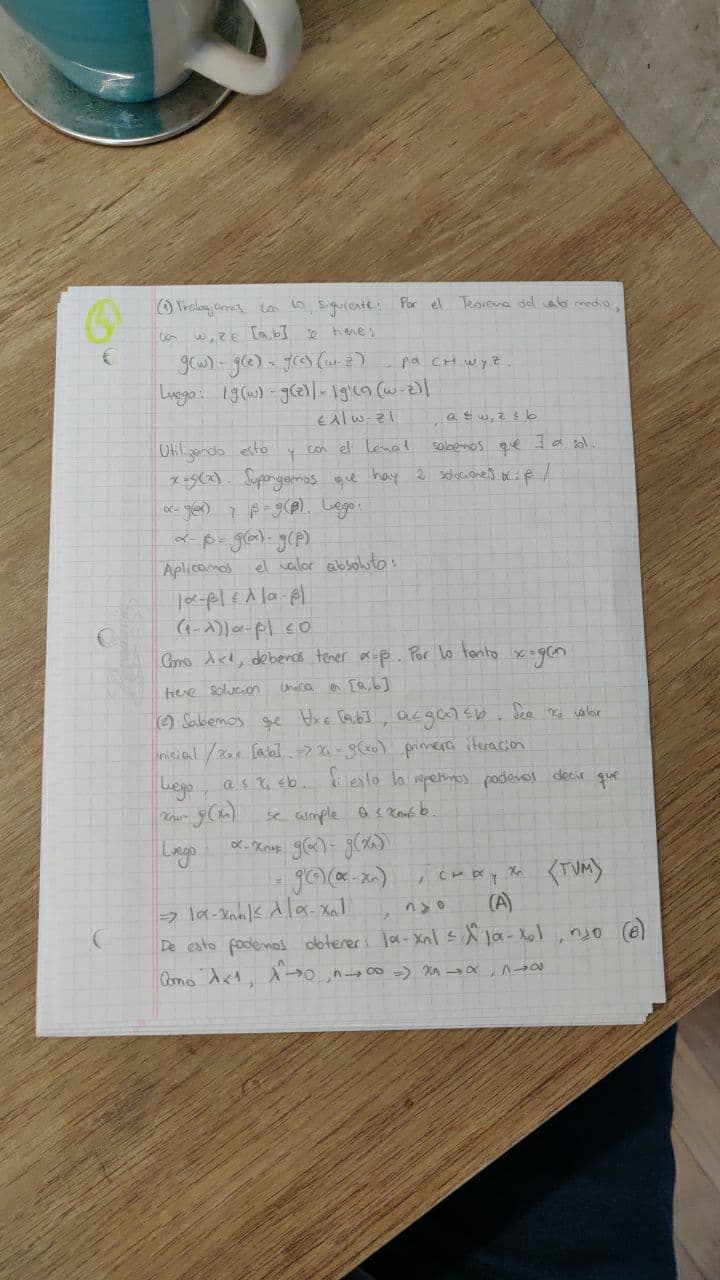 4
(1) Trabajamos con lo siguiente: Por el Teorema del valor medio,
con w, z ∈ [a,b] se tiene:
g(w) - g(z) = g'(c) (w-z) , pa c ↦ w y z.
Luego: |g(w) - g(z)| = |g'(c) (w-z)|
≤ λ|w-z| , a ≤ w, z ≤ b
Utilizando esto y con el Lema 1 sabemos que ∃ a sol.
x=g(x). Supongamos que hay 2 soluciones α; β /
α=g(α) y β=g(β). Luego:
α-β = g(α)-g(β)
Aplicamos el valor absoluto:
|α-β| ≤ λ|α-β|
(1-λ)|α-β| ≤ 0
Como λ<1, debemos tener α=β. Por lo tanto x=g(x)
tiene solucion unica en [a,b]
(2) Sabemos que ∀x ∈ [a,b], a≤g(x)≤b. Sea x₀ valor
inicial / x₀ ∈ [a,b] => x₁ = g(x₀) primera iteracion
Luego, a ≤ x₁ ≤ b. Si esto lo repetimos podemos decir que
xn+1 = g(xn) se cumple a ≤ xn+1 ≤ b.
Luego α-xn+1 = g(α) - g(xn)
= g'(c)(α-xn) , c ↦ α y xn <TVM>
=> |α-xn+1| ≤ λ|α-xn| , n≥0 (A)
De esto podemos obtener: |α-xn| ≤ λⁿ|α-x₀| , n≥0 (B)
Como λ<1, λⁿ→0, n→∞ => xn→α, n→∞